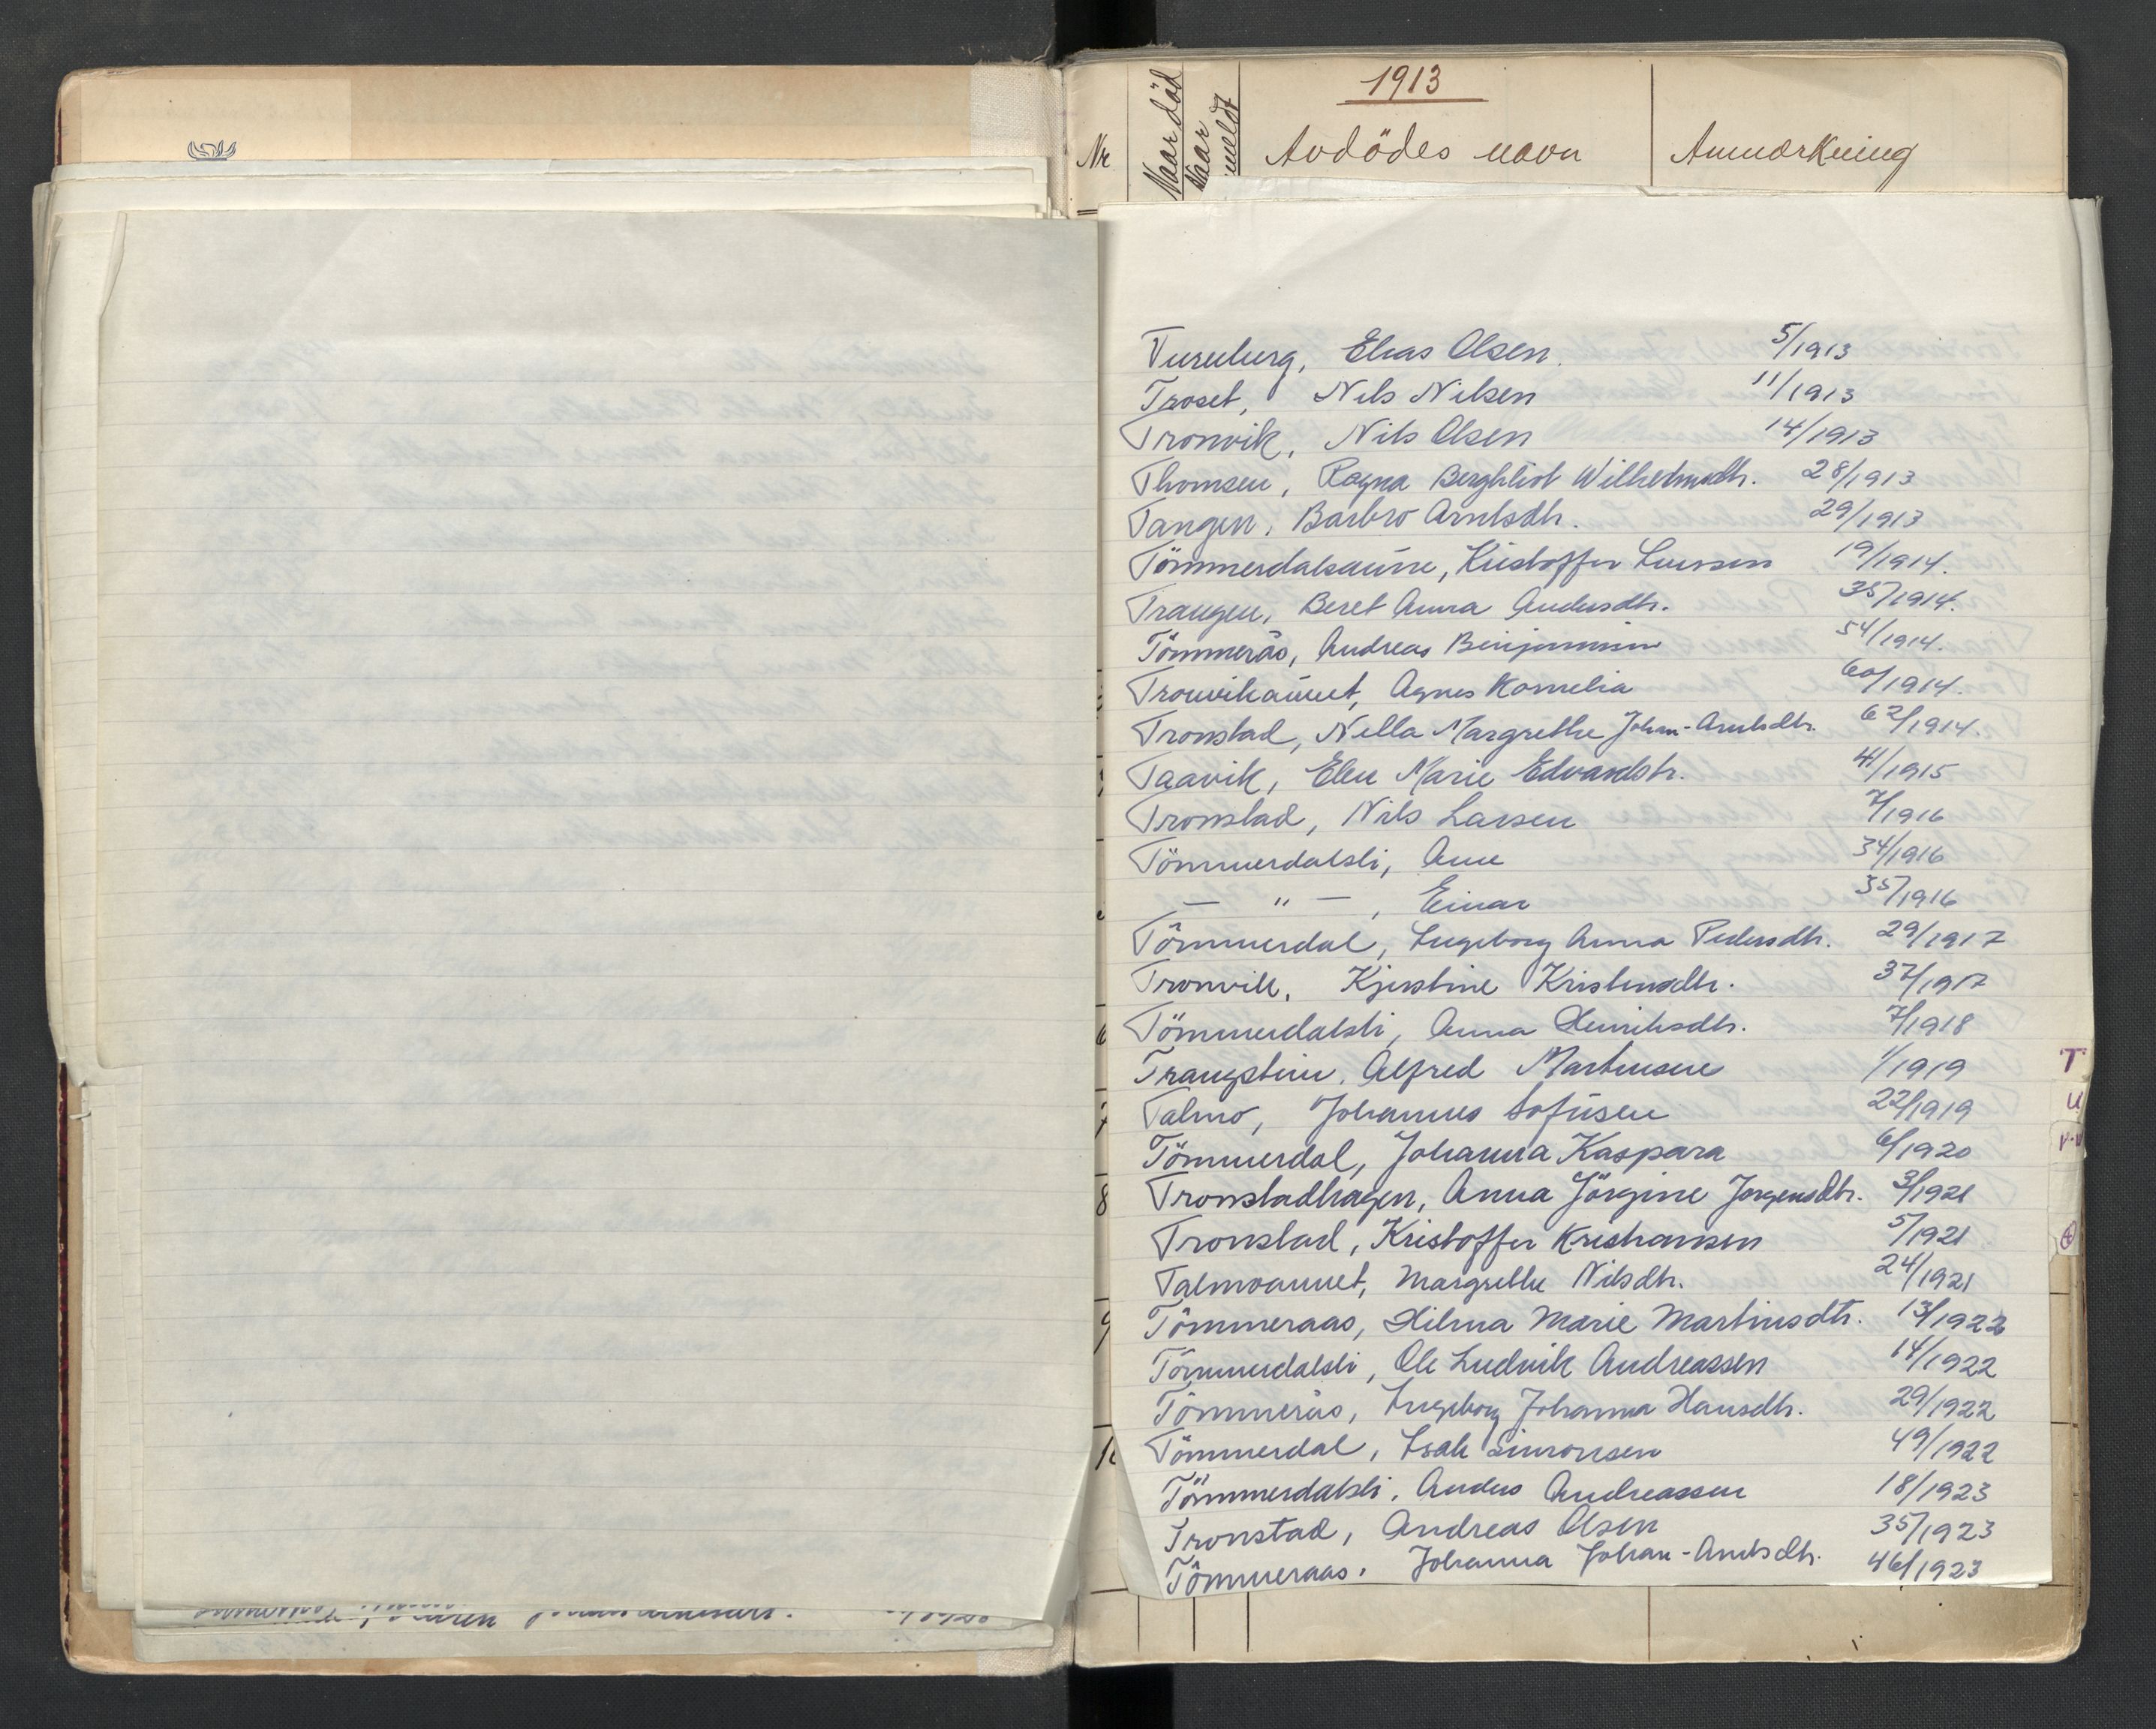 1913
Nr
Naar död
Naar meldt
Avdödes navn
Anmærkning
Tureberg, Elias Olsen. 5/1913
Troset, Nils Nilsen 11/1913
Tronvik, Nils Olsen 14/1913
Thomsen, Ragna Berghliot Wilhelmsdtr. 28/1913
Tangen, Barbro Arntsdtr. 29/1913
Tömmerdalsaune, Kristoffer Larssen 19/1914.
Trangen, Beret Anna Andersdtr. 35/1914.
Tömmerås, Andreas Binjaminsen 54/1914.
Tronvikaunet, Agnes Kornelia 60/1914.
Tronstad, Nella Margrethe Johan-Arntsdtr. 62/1914.
Taavik, Elen Marie Edvardstr. 41/1915
Tronstad, Nils Larsen 7/1916
Tömmerdalsli, Ane 34/1916
— " —, Einar 35/1916
Tömmerdal, Ingeborg Anna Pedersdtr. 29/1917
Tronvik, Kjerstine Kristensdtr. 37/1917
Tömmerdalsli, Anna Henriksdtr. 7/1918
Trangstuin, Alfred Martinsen 1/1919
Talmo, Johannes Sofusen 22/1919
Tömmerdal, Johanna Kaspara 6/1920
Tronstadhagen, Anna Jörgine Jorgensdtr. 3/1921
Tronstad, Kristoffer Kristiansen 5/1921
Talmoaunet, Margrethe Nilsdtr. 24/1921
Tömmeraas, Hilma Marie Martinsdtr. 13/1922
Tömmerdalsli, Ole Ludvik Andreassen 14/1922
Tömmerås, Ingeborg Johanna Hansdtr. 29/1922
Tömmerdal, Isak Simonsen 49/1922
Tömmerdalsli, Anders Andreassen 18/1923
Tronstad, Andreas Olsen 35/1923
Tömmeraas, Johanna Johan-Arntsdtr. 46/1923
6
7
8
9
T
U